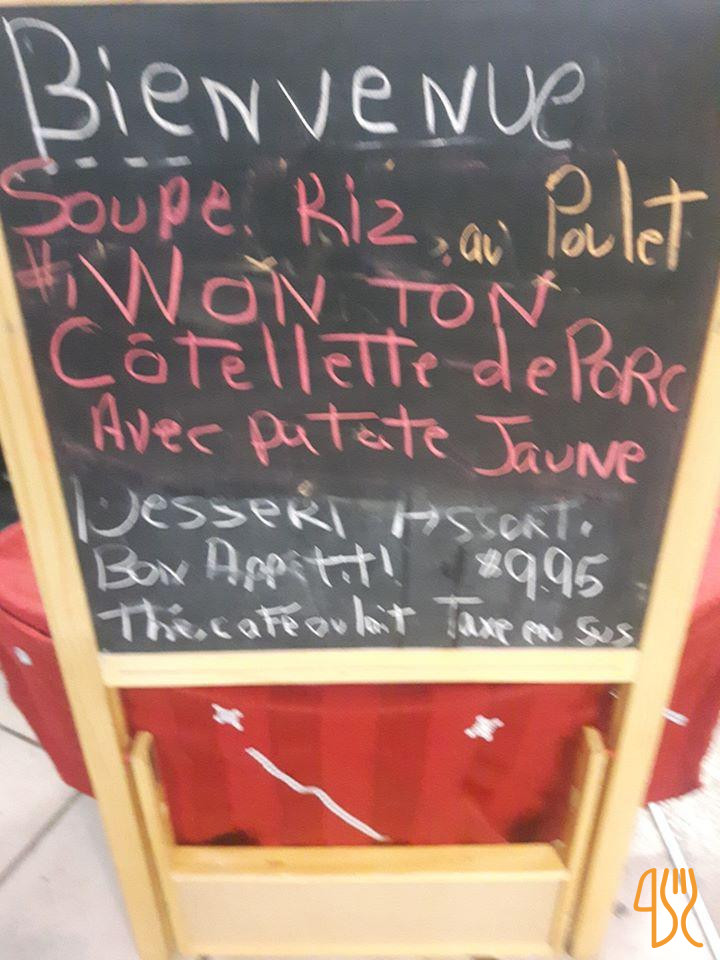 Bienvenue
Soupe. Riz au Poulet
#1 WON TON
Côtellette de PORC
Avec patate Jaune
Dessert Assort.
Bon Appétit! $9.95
Thé, café ou lait Taxe en sus